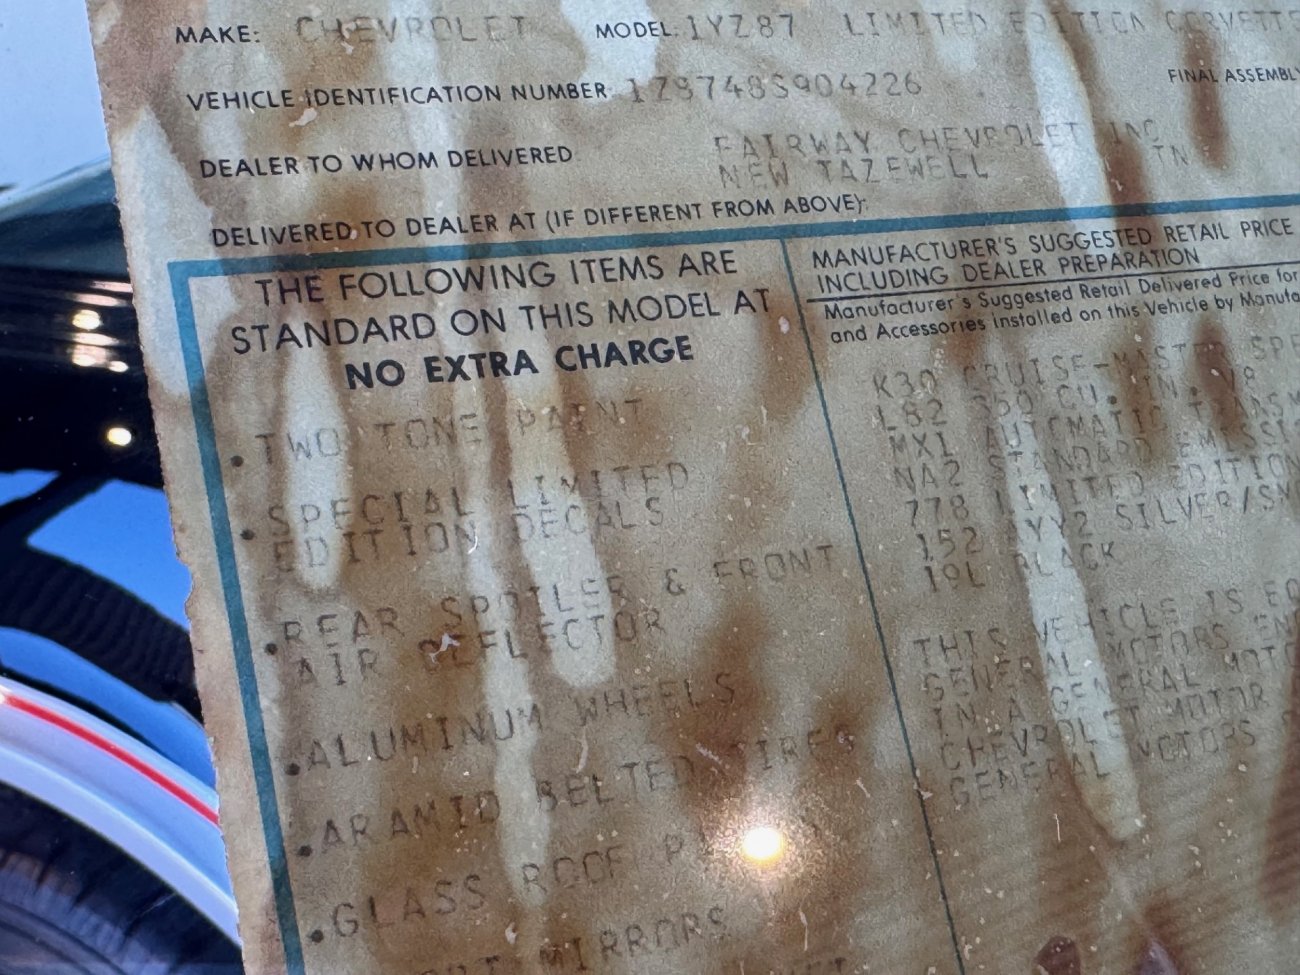 MAKE: CHEVROLET MODEL: 1YZ87 LIMITED EDITION CORVETTE
VEHICLE IDENTIFICATION NUMBER 1Z8748S904226 FINAL ASSEMBLY
DEALER TO WHOM DELIVERED FAIRWAY CHEVROLET INC
NEW TAZEWELL TN
DELIVERED TO DEALER AT (IF DIFFERENT FROM ABOVE):
THE FOLLOWING ITEMS ARE
STANDARD ON THIS MODEL AT
NO EXTRA CHARGE
• TWO TONE PAINT
• SPECIAL LIMITED
EDITION DECALS
• REAR SPOILER & FRONT
AIR DEFLECTOR
• ALUMINUM WHEELS
• ARAMID BELTED TIRES
• GLASS ROOF
MIRRORS
MANUFACTURER'S SUGGESTED RETAIL PRICE
INCLUDING DEALER PREPARATION
Manufacturer's Suggested Retail Delivered Price for
and Accessories Installed on this Vehicle by Manufa
K30 CRUISE-MASTER SPE
L82 350 CU. IN. V8
MX1 AUTOMATIC TRANSM
NA2 STANDARD EMISSI
778 LIMITED EDITION
152 YY2 SILVER/SM
19L BLACK
THIS VEHICLE IS EQ
GENERAL MOTORS EN
IN A GENERAL MOTO
CHEVROLET MOTOR
GENERAL MOTORS